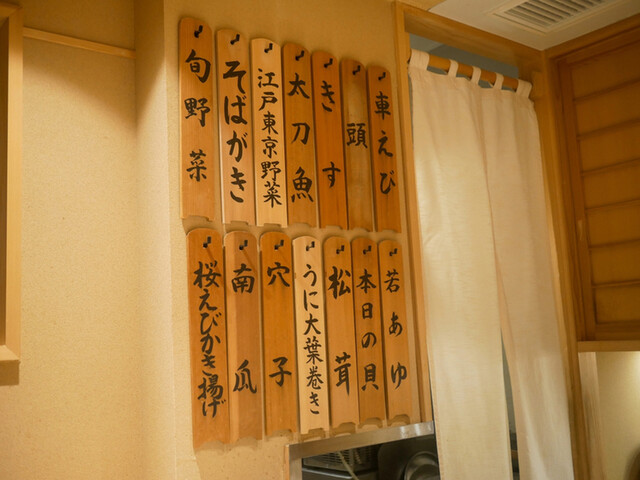 車えび
頭
きす
太刀魚
江戸東京野菜
そばがき
旬野菜
若あゆ
本日の貝
松茸
うに大葉巻き
穴子
南瓜
桜えびかき揚げ